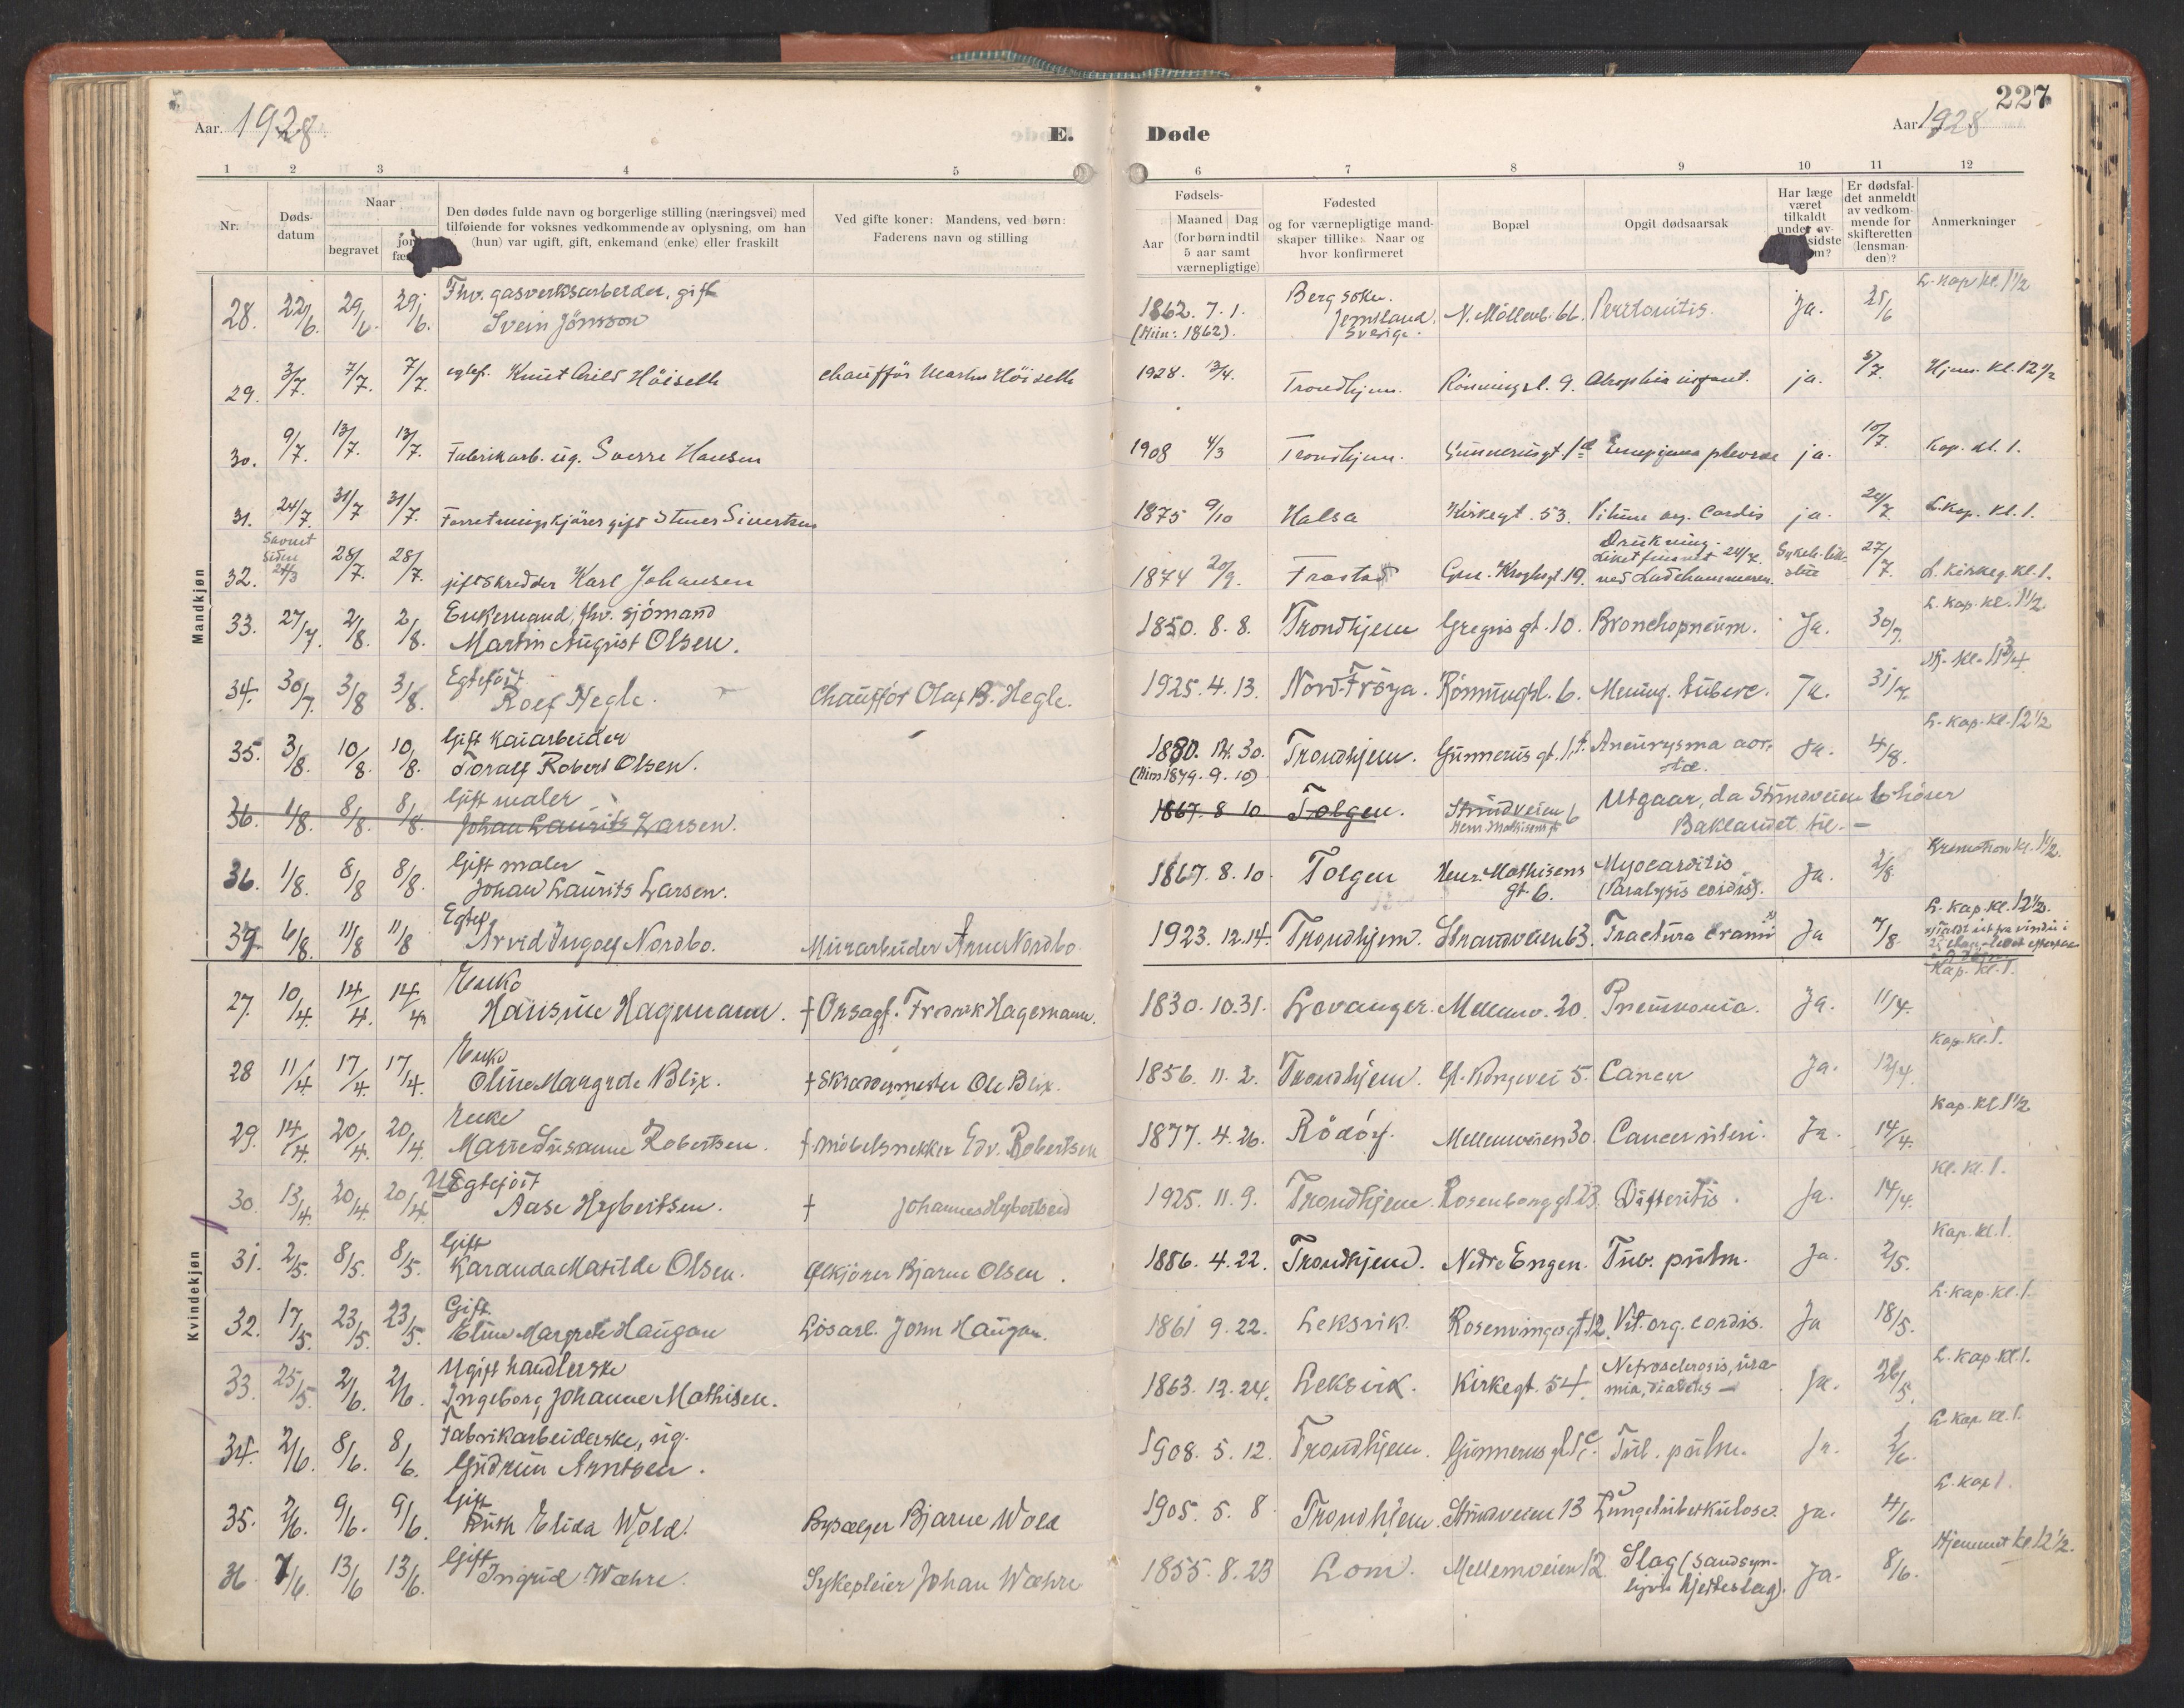 Aar. 1928. E. Døde Aar 1928 227
1 2 3 4 5 6 7 8 9 10 11 12
Nr. Døds-datum Naar begravet Den dødes fulde navn og borgerlige stilling (næringsvei) med tilføiende for voksnes vedkommende av oplysning, om han (hun) var ugift, gift, enkemand (enke) eller fraskilt Ved gifte koner: Mandens, ved børn: Faderens navn og stilling Fødsels- Aar Maaned Dag (for børn indtil 5 aar samt værnepligtige) Fødested og for værnepligtige mandskaper tillike: Naar og hvor konfirmeret Bopæl Opgit dødsaarsak Har læge været tilkaldt under av- sidste Er dødsfaldet anmeldt av vedkommende for skifteretten (lensmanden)? Anmerkninger
Mandkjøn
28. 22/6. 29/6. 29/6. Fhv. gasverksarbeider, gift Svein Jönsson 1862. 7. 1. (Min: 1862). Berg sokn. Jemtland. Sverige. N. Möllenb. 66. Peretonitis. Ja. 25/6 L. kap kl. 1 1/2
29. 3/7. 7/7. 7/7. egtef. Knut Arild Höiseth chaufför Martin Höiseth 1928. 13/4. Trondhjem. Rönningsl. 9. Atrophia infant. ja. 5/7. Hjem. kl. 12 1/2
30. 9/7. 13/7. 13/7. Fabrikarb. ug. Sverre Hansen 1908 4/3 Trondhjem. Gunnerusgt. 1d Empyema pleurae ja. 10/7. Kap. kl. 1.
31. 24/7. 31/7 31/7. Forretningskjörer gift Stener Sivertsen 1875 9/10 Halsa Kirkegt. 53. Vitium org. Cordis ja. 24/7 L. Kap. kl. 1.
32. Savnet siden 24/3 28/7. 28/7. gift Skredder Karl Johansen 1874 20/9. Frosta Gen. Kroghsgt. 19. Drukning. Liket funnet 24/7. ved Ladehammeren. 27/7. L. Kirkeg. kl. 1.
33. 27/7. 2/8. 2/8. Enkemand, fhv. sjömand Martin August Olsen. 1850. 8. 8. Trondhjem Gregus gt. 10. Bronchopneum. Ja. 30/7. L. kap. kl. 1 1/2.
34. 30/7. 3/8 3/8. Egteföit Rolf Hegle. Chaufför Olaf B. Hegle. 1925. 4. 13. Nord-Fröya. Rönningsl. 6. Mening. tuberc. Ja. 31/7. Hj. kl. 11 3/4
35. 3/8. 10/8. 10/8. Gift kaiarbeider Toralf Robert Olsen. 1880. 30. (Min 1879. 9. 10) Trondhjem. Gunnerus gt. 1 f. Aneurysma aortæ. Ja. 4/8. L. kap. kl. 12 1/2
36. 1/8. 8/8. 8/8. Gift maler Johan Laurits Larsen. 1867. 8 10 Tolgen. Strindveien 6 Henr. Mathisens gt Utgaar, da Strindveien 6 hörer Baklandet til. -
36. 1/8. 8/8 8/8. Gift maler Johan Laurits Larsen. 1867. 8. 10. Tolgen Henr. Mathisens gt. 6. Myocarditis (Paralysis cordis). Ja. 2/8 Kremation kl. 1 1/2.
37. 6/8. 11/8 11/8 Egtef Arvid Ingolf Nordbo. Murarbeider Arne Nordbo 1923. 12. 14. Trondhjem. Strandveien 63. Fractura cranii Ja 7/8. L. kap. kl. 12 1/2.
Kvindekjøn
27. 10/4. 14/4. 14/4 Enke Hansine Hagemann. † Onsagf. Fredrik Hagemann. 1830. 10. 31. Levanger. Mellemv. 20. Pneumonia. Ja. 11/4. Kap. kl. 1.
28 11/4. 17/4. 17/4. Enke Oline Margrete Blix. † Skræddermester Ole Blix. 1856. 11. 2. Trondhjem. Gl. Kongevei 5. Cancer Ja. 12/4. Kap. kl. 1.
29. 14/4. 20/4. 20/4. Enke Marie Susanne Robertsen. † Möbelsnekker Edv. Robertsen 1877. 4. 26. Rödöy. Mellemveien 30. Cancer uteri. Ja. 14/4. Kap. kl. 1 1/2
30. 13/4. 20/4. 20/4. U Egteföit Aase Hegbertsen. † Johannes Hegbertsen 1925. 11. 9. Trondhjem. Rosenborg gt. 23. Difteritis. Ja. 14/4. kl. 1.
31. 2/5. 8/5. 8/5. Gift Karanda Matilde Olsen. Ölkjörer Bjarne Olsen. 1886. 4. 22. Trondhjem. Nedre Engen. Tub. pulm. Ja. 2/5. Kap. kl. 1.
32. 17/5. 23/5. 23/5. Gift. Eline Margrete Haugan Lösarb. John Haugan. 1861 9. 22. Leksvik. Rosenvinges gt 12. Vit. org. cordis. Ja 18/5. L. kap. kl. 1.
33. 25/5. 2/6. 2/6. Ugift handlerske Ingeborg Johanne Mathisen. 1863. 12. 24. Leksvik. Kirkegt. 54. Nefrosclerosis, uramia, diabetes - Ja. 26/5. L. kap. kl. 1.
34. 2/6. 8/6. 8/6. Fabrikarbeiderske, ug. Gudrun Arntsen. 1908. 5. 12. Trondhjem. Gunnerus gt 1 c. Tub. pulm. Ja. 2/6. L. kap. kl. 1.
35. 2/6. 9/6. 9/6. Gift Ruth Elida Wold. Bysælger Bjarne Wold 1905. 5. 8. Trondhjem. Strindveien 13 Lungetuberkulose. Ja. 4/6. L. kap 1.
36 7/6. 13/6 13/6. Gift Ingrid Wæhre. Sykepleier Johan Wæhre 1855. 8. 23 Lom. Mellemveien 12. Slag (sandsynligvis hjerteslag). Ja. 8/6. Hjemmet kl 12 1/2.